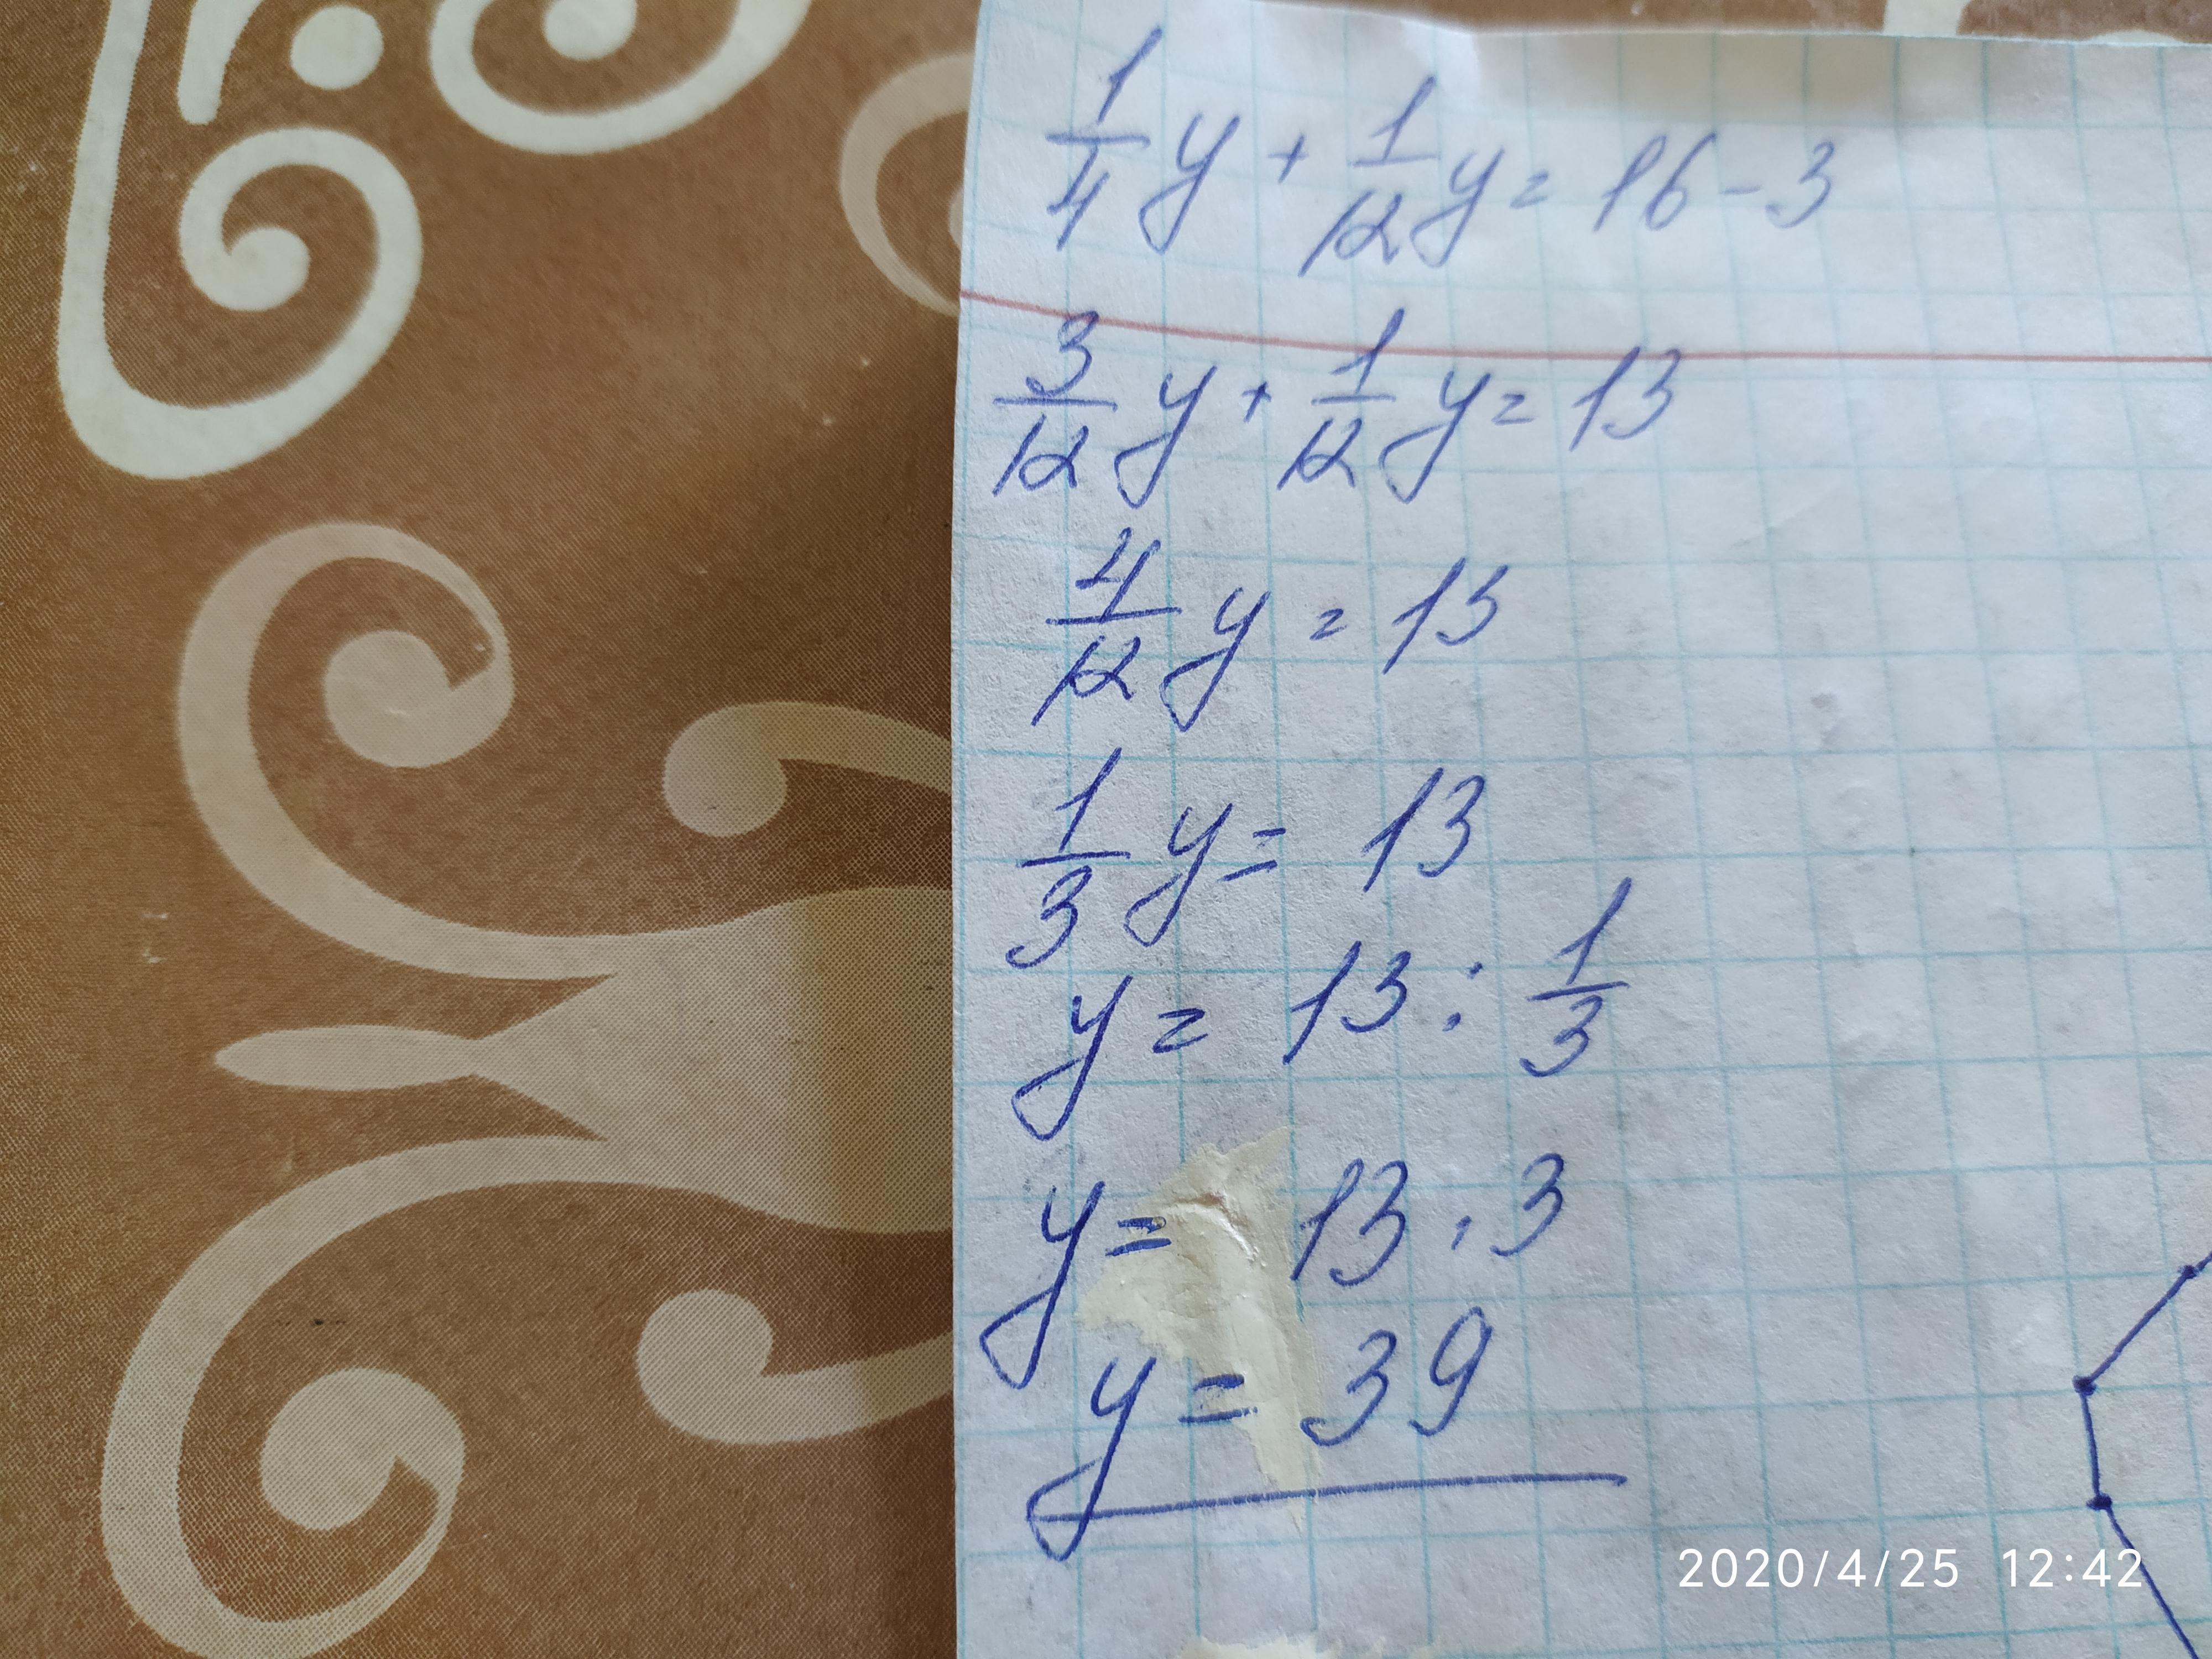 1/4 y + 1/12 y = 16 - 3
3/12 y + 1/12 y = 13
4/12 y = 13
1/3 y = 13
y = 13 : 1/3
y = 13 · 3
y = 39
2020/4/25 12:42